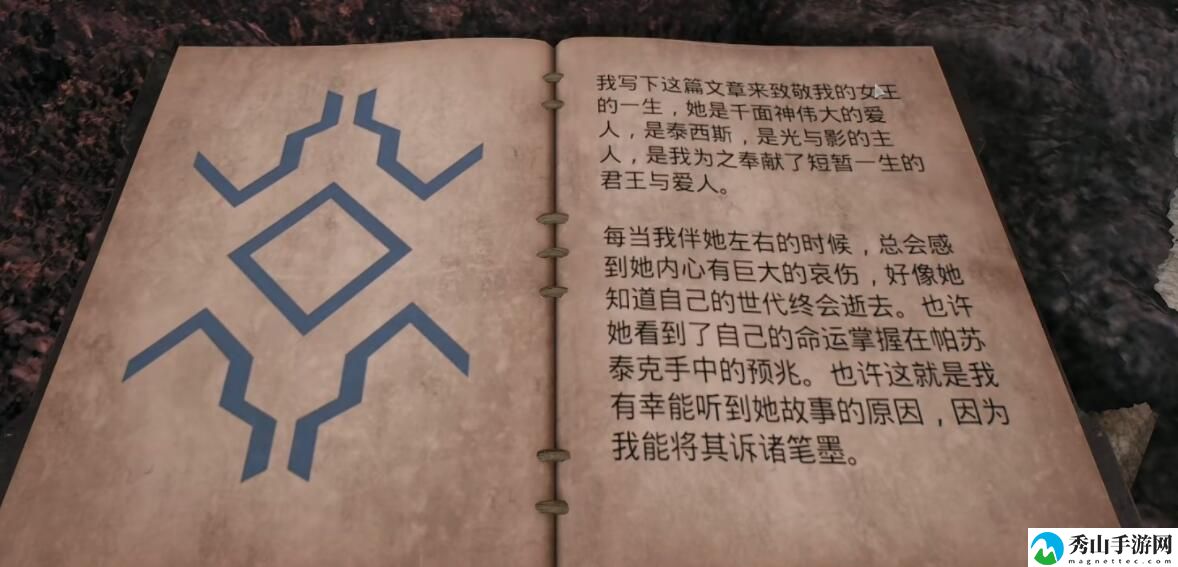 我写下这篇文章来致敬我的女王
的一生，她是千面神伟大的爱
人，是泰西斯，是光与影的主
人，是我为之奉献了短暂一生的
君王与爱人。
每当我伴她左右的时候，总会感
到她内心有巨大的哀伤，好像她
知道自己的世代终会逝去。也许
她看到了自己的命运掌握在帕苏
泰克手中的预兆。也许这就是我
有幸能听到她故事的原因，因为
我能将其诉诸笔墨。
秀山手游网
magnettec.com